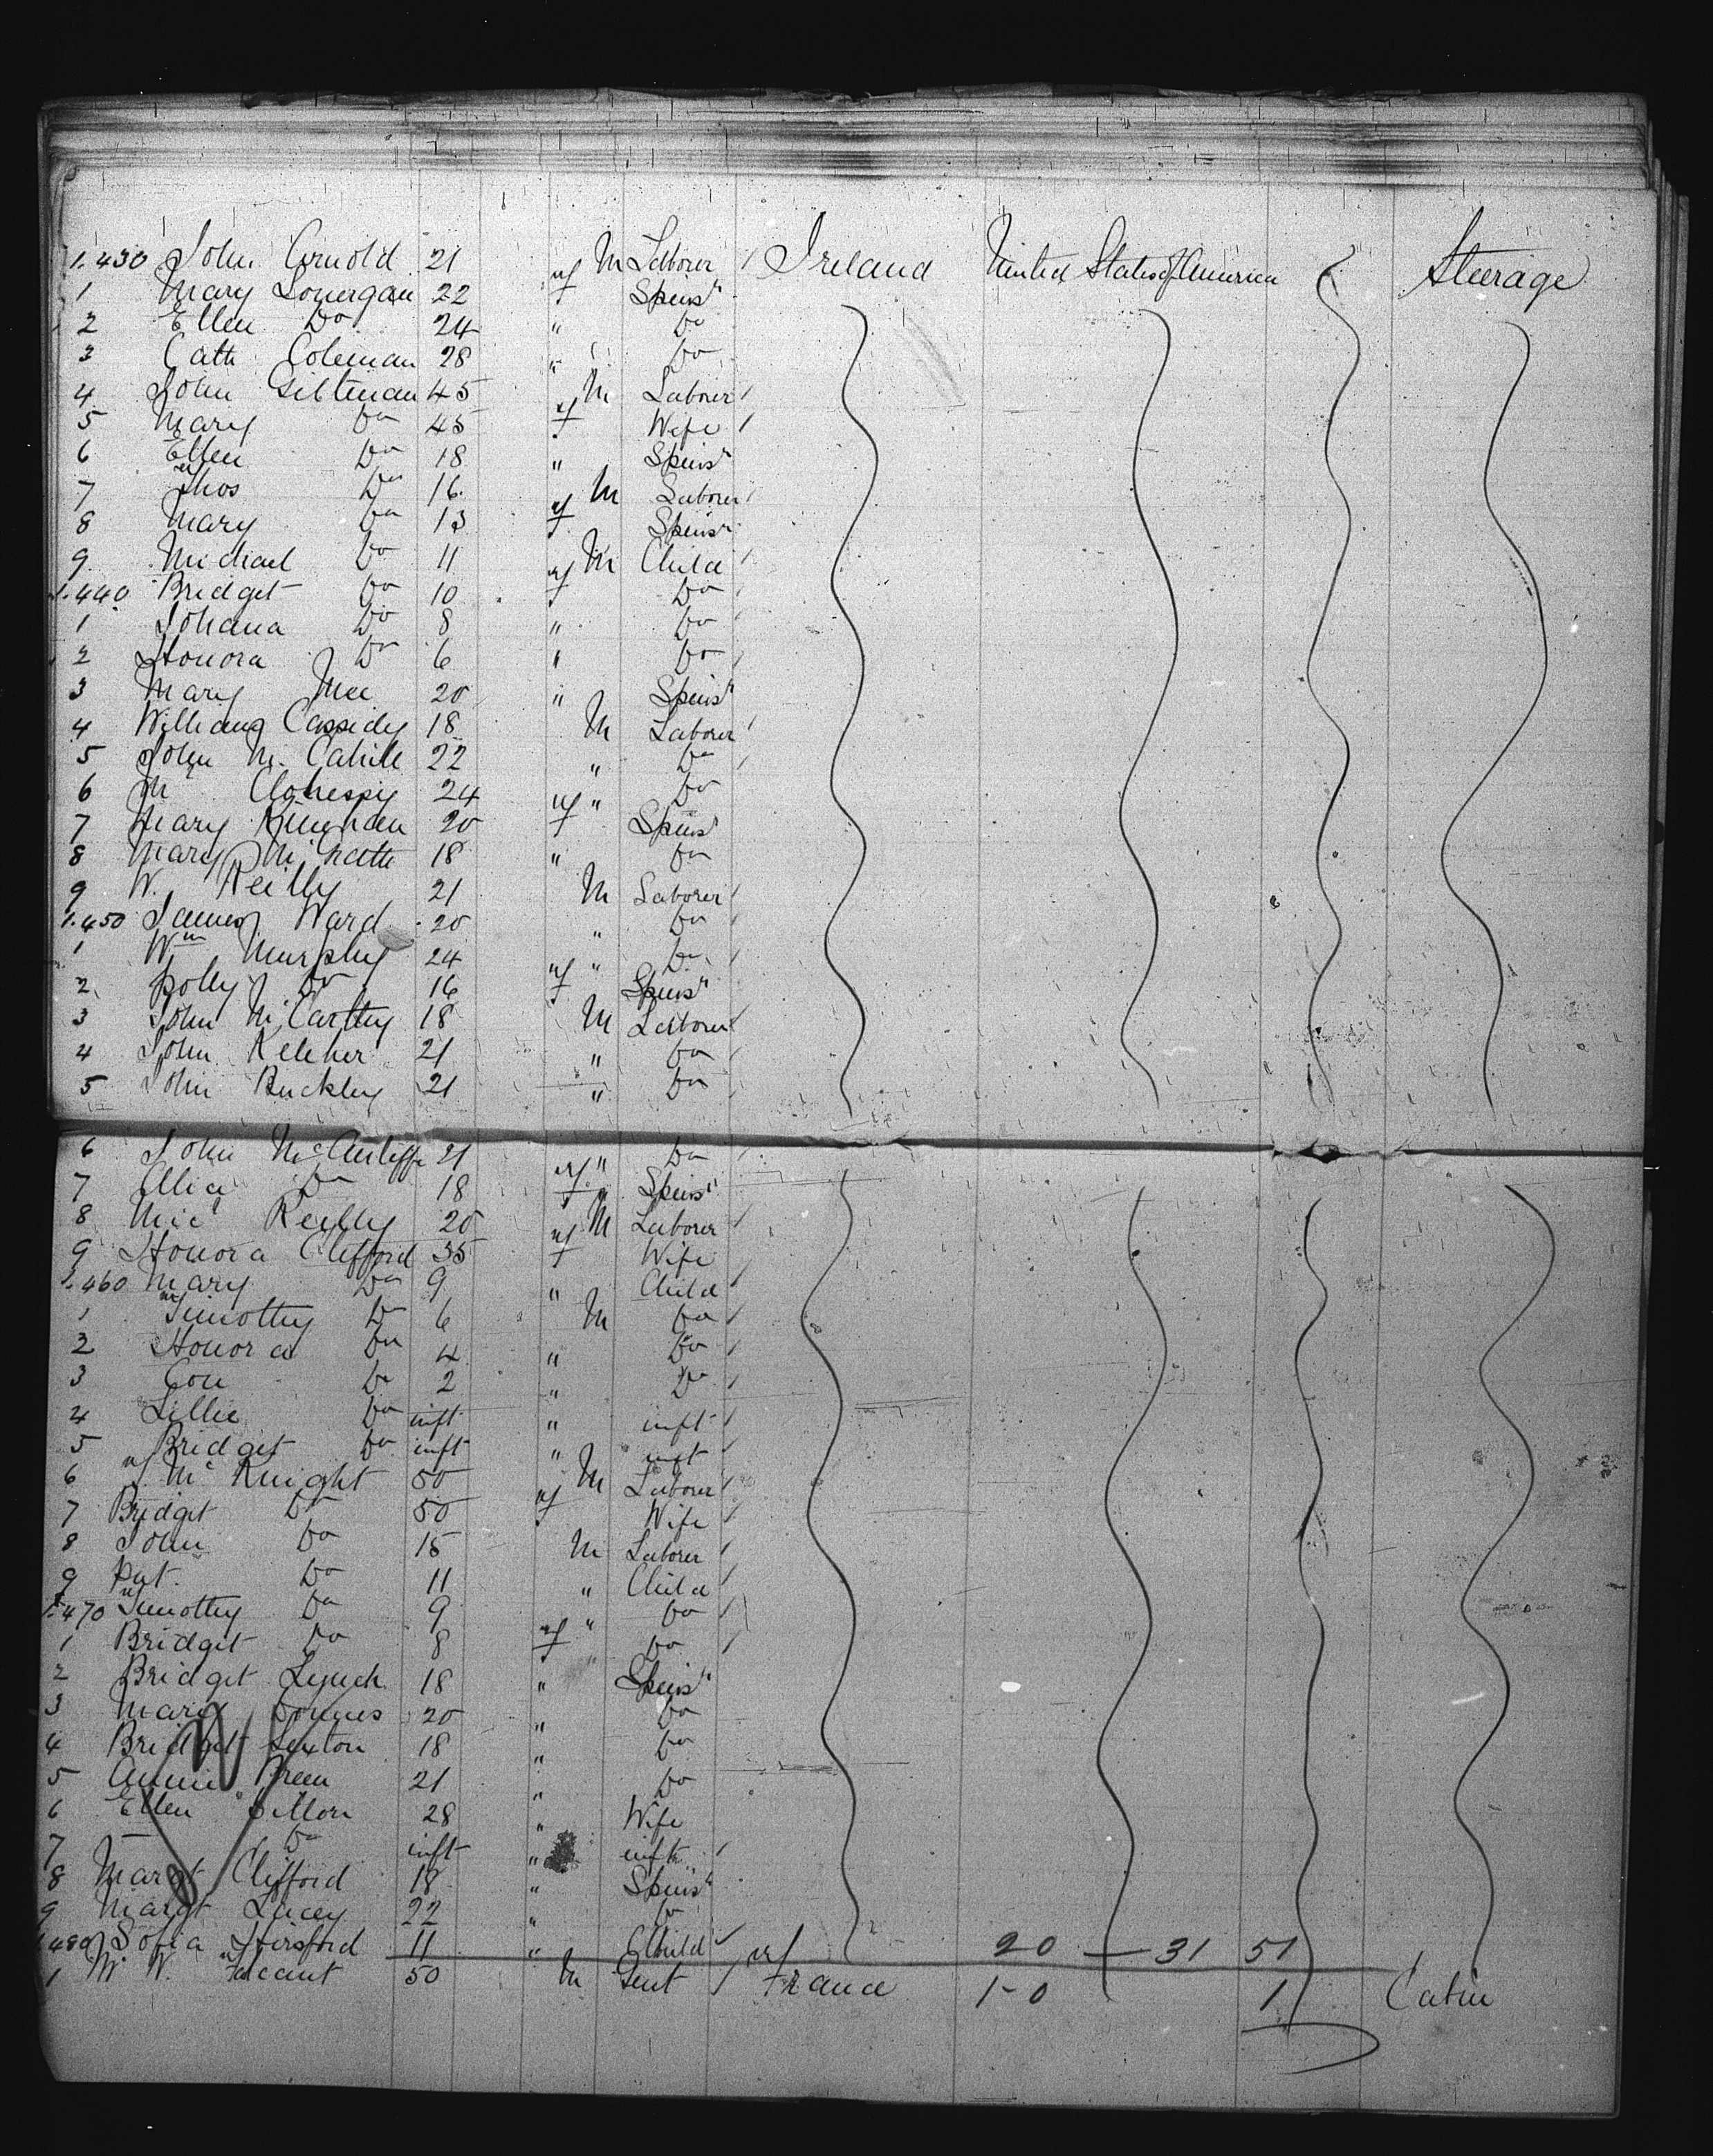 1.430 John Arnold 21 M Laborer Ireland United States of America Steerage
1 Mary Lonergan 22 f Spinsr
2 Ellen Do 24 " Do
3 Cath Coleman 28 " Do
4 John 45 M Laborer
5 Mary Do 45 f Wife
6 Ellen Do 18 " Spinsr
7 Thos Do 16 M Laborer
8 Mary Do 13 f Spinsr
9 Michael Do 11 M Child
1.440 Bridget Do 10 f Do
1 Johana Do 8 " Do
2 Honora Do 6 " Do
3 Mary Mee 20 " Spinsr
4 William Cassidy 18 M Laborer
5 John M. Cahill 22 " Do
6 M Clohessy 24 " Do
7 Mary 20 f Spinsr
8 Mary McGrath 18 " Do
9 W. Reilly 21 M Laborer
1.450 James Ward 20 " Do
1 Wm Murphy 24 " Do
2 Polly Do 16 f Spinsr
3 John McCarthy 18 M Laborer
4 John Keleher 21 " Do
5 John Buckley 21 " Do
6 John McAuliffe 21 " Do
7 Do 18 f Spinsr
8 Micl Reilly 20 M Laborer
9 Honora Clifford 35 f Wife
1.460 Mary Do 9 " Child
1 Timothy Do 6 M Do
2 Honora Do 4 " Do
3 Con Do 2 " Do
4 Lillie Do inft " inft
5 Bridget Do inft " inft
6 J. McKnight 50 M Laborer
7 Bridget Do 50 f Wife
8 John Do 15 M Laborer
9 Pat. Do 11 " Child
1.470 Timothy Do 9 " Do
1 Bridgit Do 8 f Do
2 Bridget Lynch 18 " Spinsr
3 Mary 20 " Do
4 Bridget Sexton 18 " Do
5 Annie Breen 21 " Do
6 Ellen Dillon 28 " Wife
7 — Do inft " inft
8 Margt Clifford 18 " Spinsr
9 Margt Lacey 22 " Do
1.480 Sofia 11 " Child 20 — 31 51
1 M. W. 50 M Gent France 1-0 1 Cabin